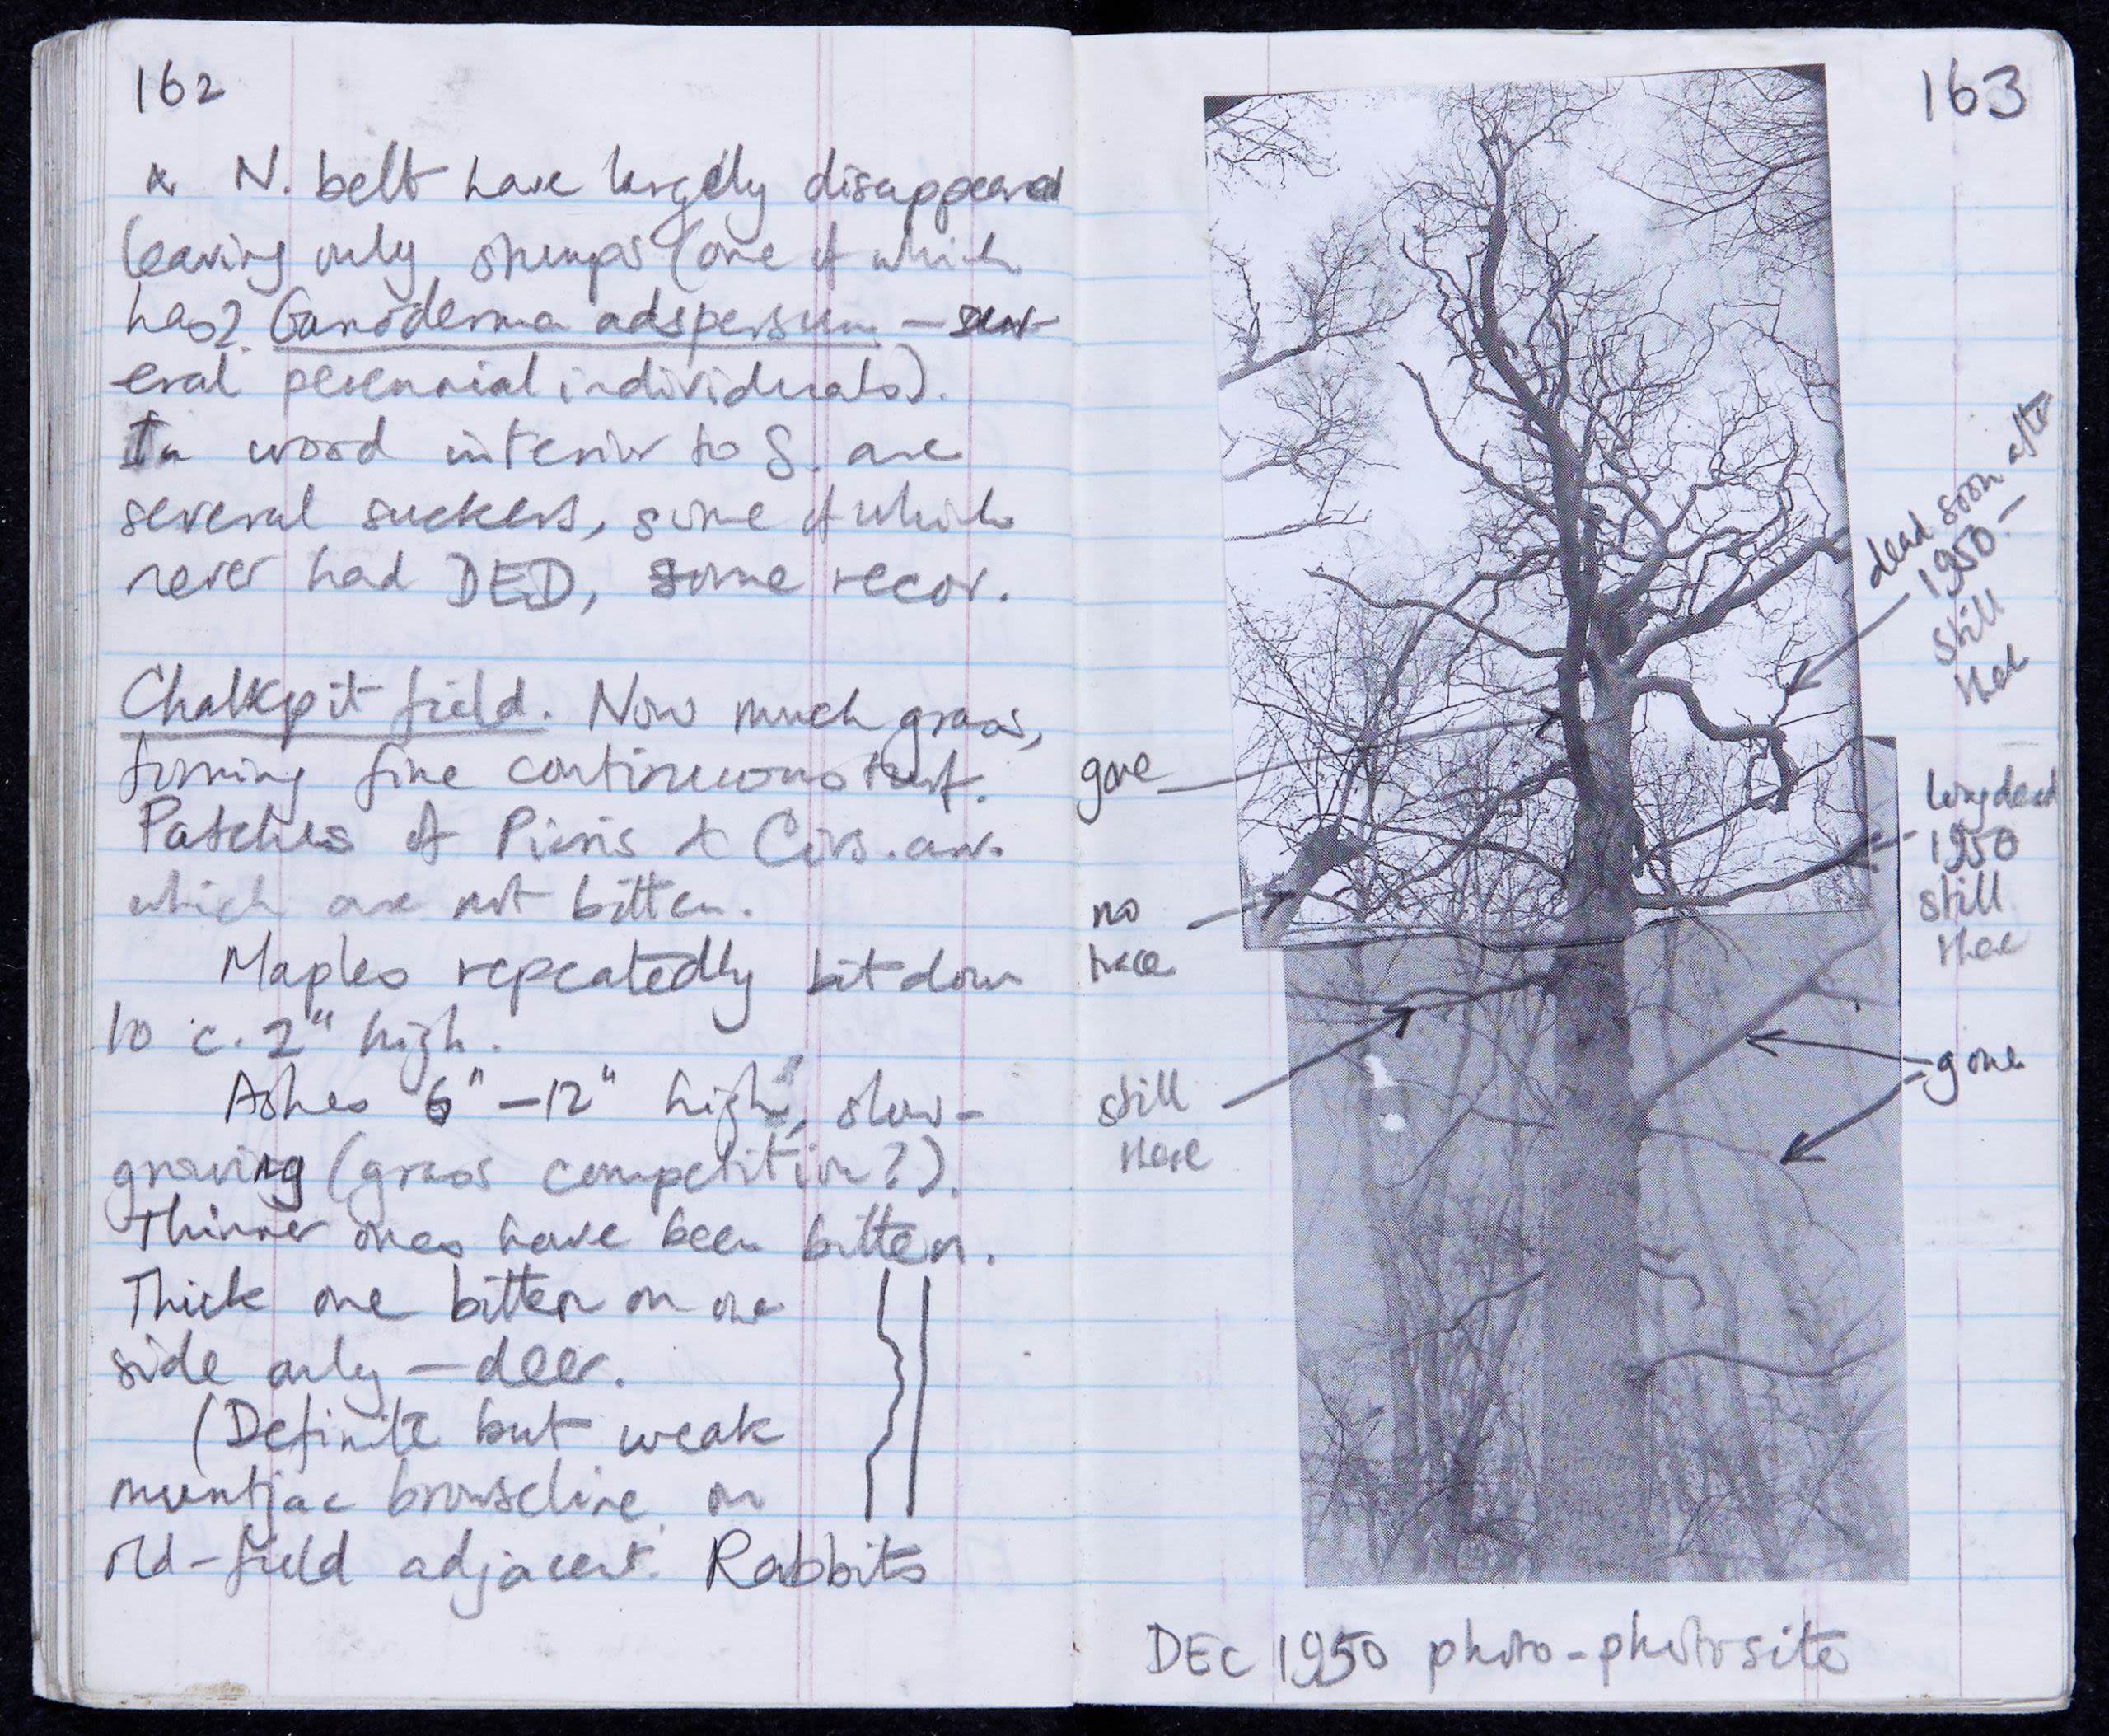 162
N. belt have largely disappeared
leaving only stumps (one of which
has? Ganoderma adspersum – sev-
eral perennial individuals).
In wood interior to S. are
several suckers, some of which
never had DED, some recov.
Chalkpit field. Now much grass,
forming fine continuous turf.
Patches of Picris & Cirs. arv.
which are not bitten.
Maples repeatedly bit down
to c. 2" high.
Ashes 6" – 12" high, slow-
growing (grass competition?).
Thinner ones have been bitten.
Thick one bitten on one
side only – deer.
(Definite but weak
muntjac browseline on
old-field adjacent. Rabbits
163
dead soon after
1950 –
still
there
gone
long dead
1950
still
there
no
trace
gone
still
there
DEC 1950 photo - photosite